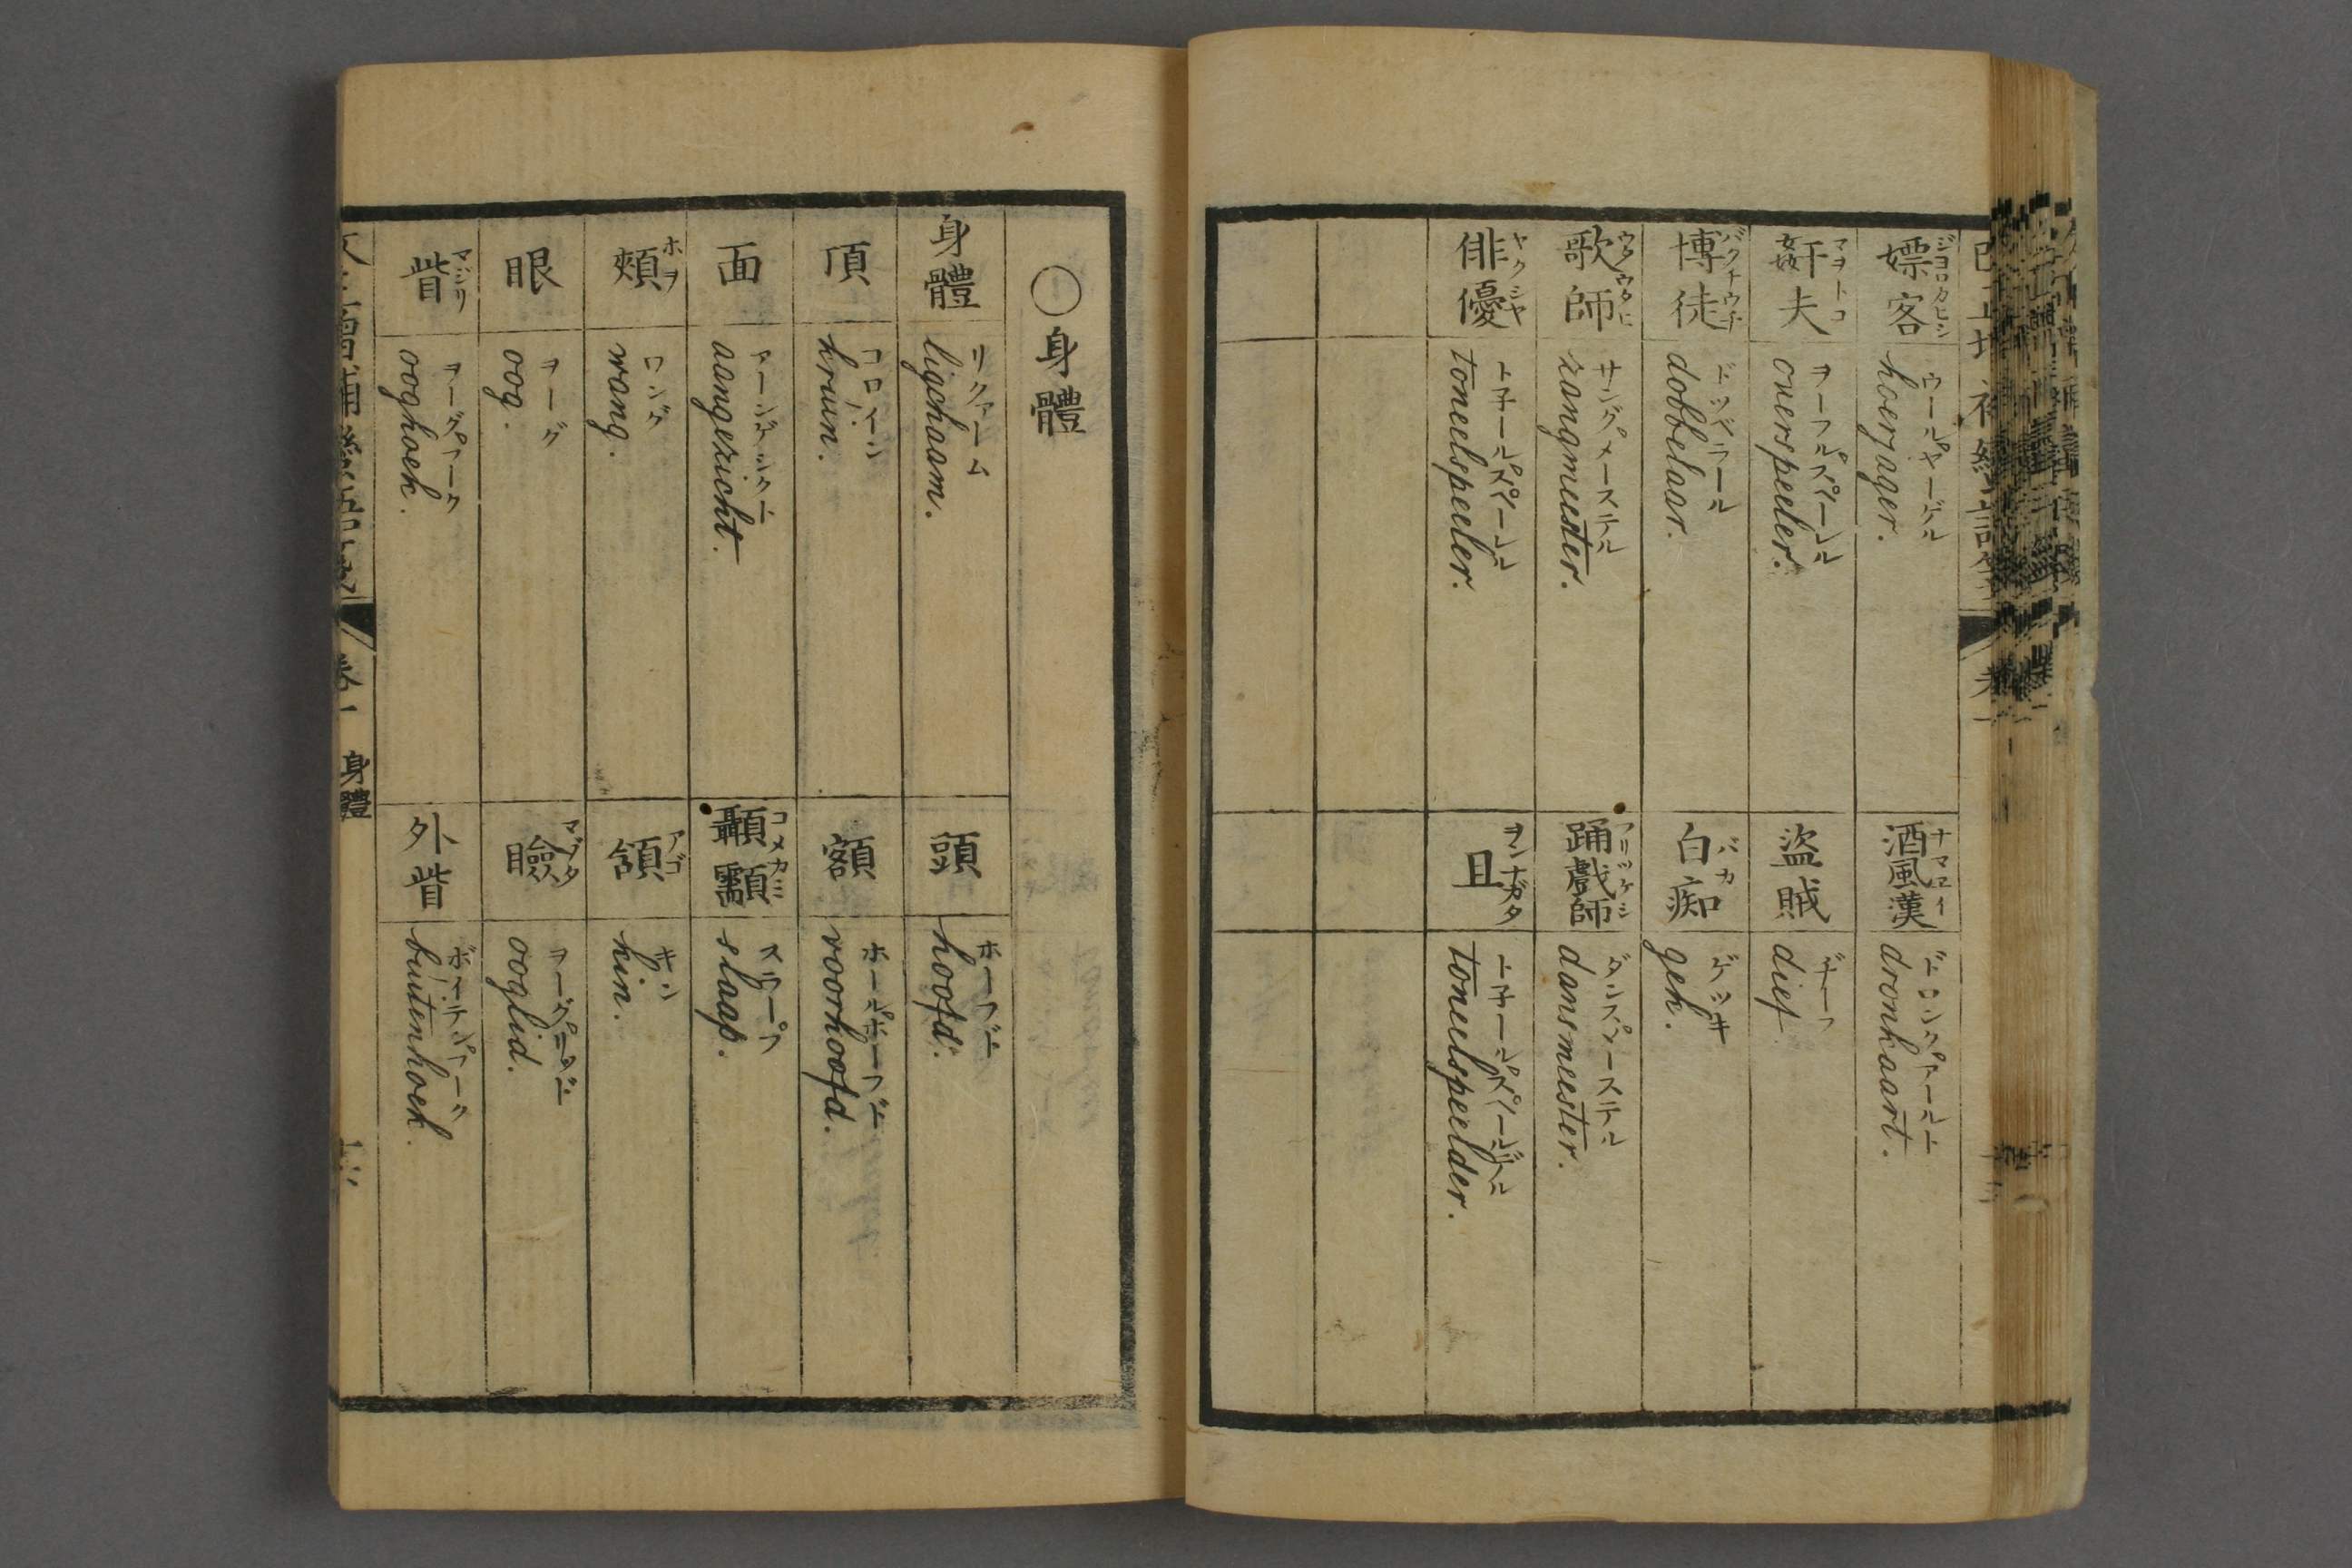 嫖客 ジヨロカヒシ
hoerjager. ウールヤーゲル
酒風漢 ナマヱイ
dronkaart. ドロンクアールト
奸夫 マヲトコ
overspeeler. ヲーフルスペールル
盜賊
dief ヂーフ
博徒 バクチウチ
dobbelaar. ドツベラール
白痴 バカ
gek. ゲッキ
歌師 ウタウタヒ
zangmeester. サングメーステル
踊戲師 フリツケシ
dansmeester. ダンスメーステル
俳優 ヤクシヤ
toneelspeeler. ト子ールスペールル
且 ヲンナガタ
toneelspeelder. ト子ールスペールデル
〇身體
身體
ligchaam. リクアーム
頭
hoofd. ホーフド
頂
kruin. コロイン
額
voorhoofd. ホールホーフド
面
aangezicht. アーンゲシクト
顳顬 コメカミ
slaap. スラープ
頰 ホヲ
wang. ワング
頷 アゴ
kin. キン
眼
oog. ヲーグ
瞼 マブタ
ooglid. ヲーグリッド
眥 マジリ
ooghoek. ヲーグフーク
外眥
buitenhoek. ボイテンフーク
卷一 身體